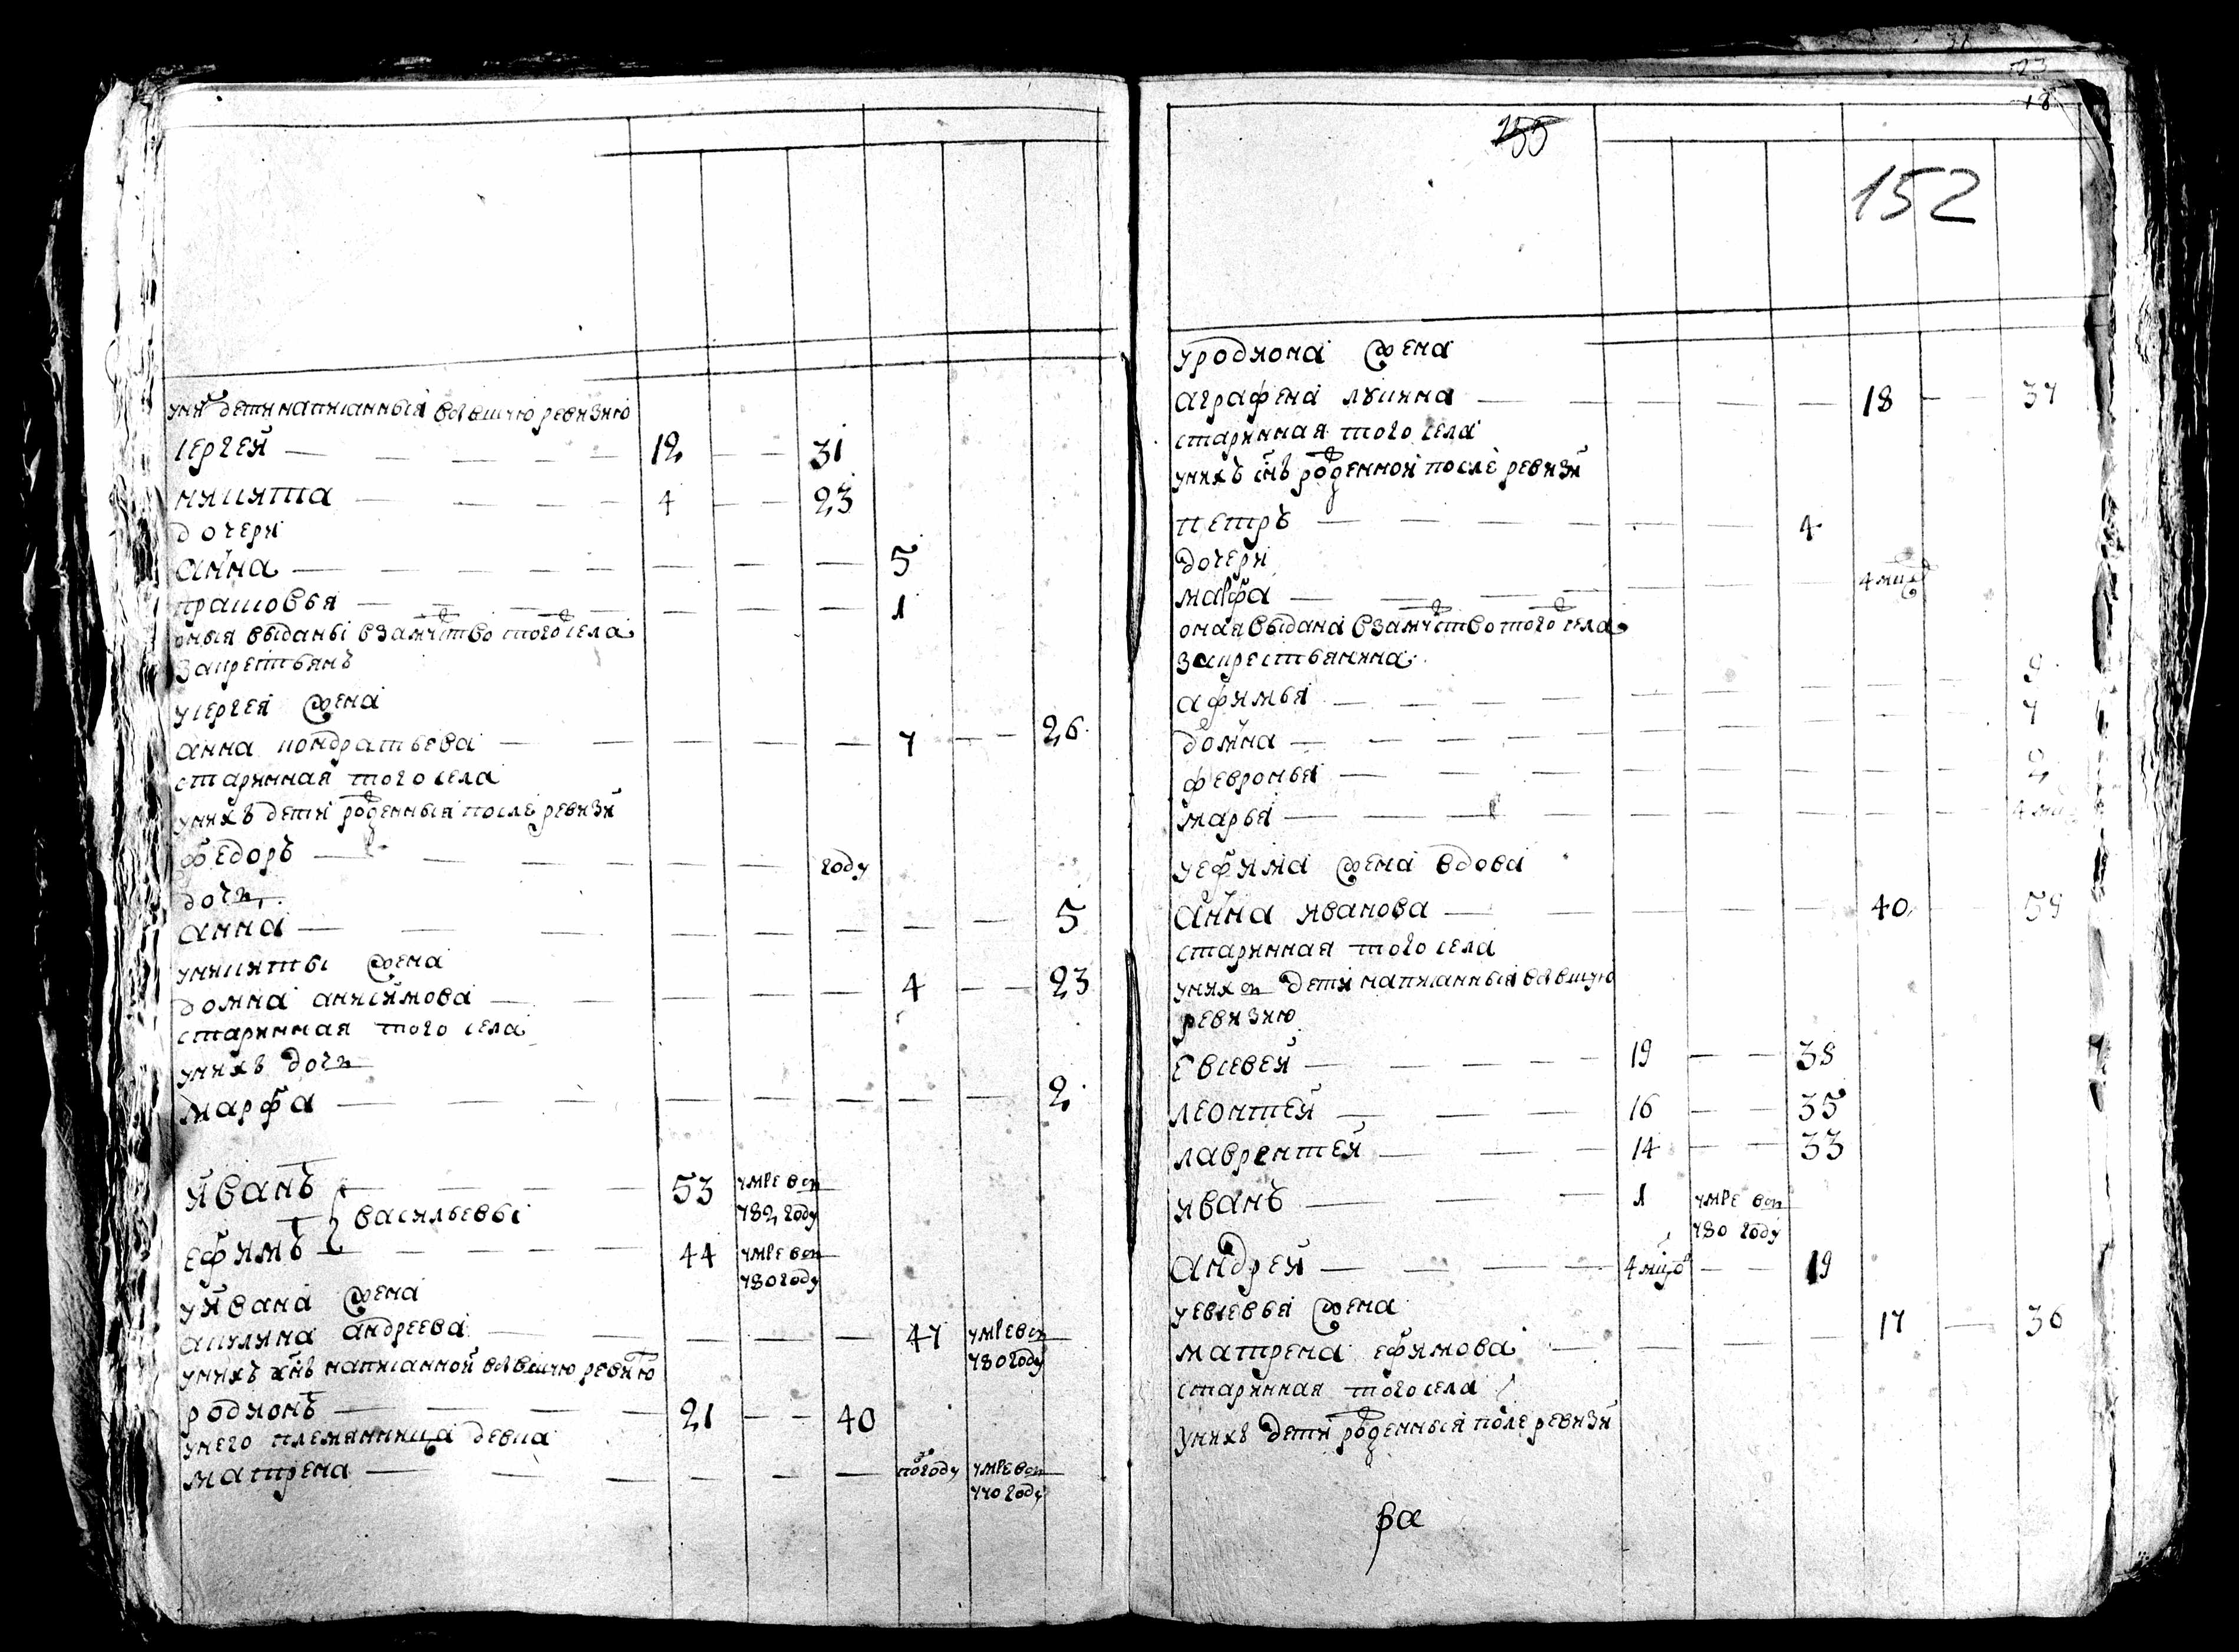 у них дети написанныя в бывшую ревизию
Сергей — 12 — — 31
Никита — 4 — — 23
дочери
Анна — 5
Прасковья — 1
оныя выданы в замужство того села
за крестьянъ
у Сергея жена
Анна Кондратьева — 7 — — 26
старинная того села
у нихъ дети рожденныя после ревизи
Федоръ — году
дочь
Анна — 5
у Никиты жена
Домна Анисимова — 4 — — 23
старинная того села
у нихъ дочь
Марфа — 2
Иванъ — 53 умре въ 782 году
Васильевы
Ефимъ — 44 умре въ 780 году
у Ивана жена
Акулина Андреева — 47 умре въ 780 году
у нихъ снъ написанной в бывшую ревизию
Родионъ — 21 — — 40
у него племянница девка
Матрена — по году умре въ 770 году
155
23
18
152
у Родиона жена
Аграфена Лукина — 18 — — 37
старинная того села
у нихъ снъ рожденной после ревизи
Петръ — 4
дочери
Марфа — 4 мцов
оная выдана в замужство того села
за крестьянина
Афимья — 9
Домна — 7
Февронья — 2
Марья — 4 мцов
у Ефима жена вдова
Анна Иванова — 40 — 59
старинная того села
у нихъ дети написанныя в бывшую
ревизию
Евсевей — 19 — — 38
Леонтей — 16 — — 35
Лаврентей — 14 — — 33
Иванъ — 1 умре въ 780 году
Андрей — 4 мцов — — 19
у Евсевья жена
Матрена Ефимова — 17 — 36
старинная того села
у нихъ дети рожденныя после ревизи